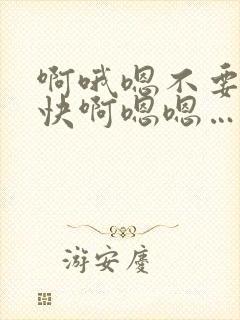 啊哦嗯不要
快啊嗯嗯…
游安庆